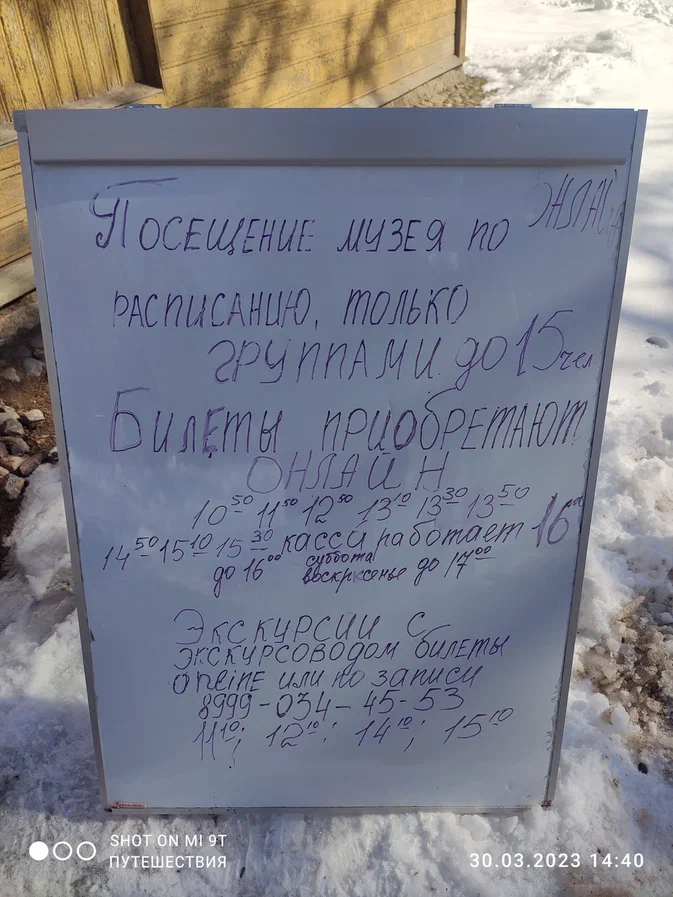 Посещение музея по онлайн
расписанию, только
группами до 15 чел
Билеты приобретают
онлайн
10 50 11 50 12 50 13 10 13 30 13 50
14 50 15 10 15 30 кассы работает 16 00
до 16 00 суббота воскрксенье до 17 00
Экскурсии с
экскурсоводом билеты
oneine или по записи
8999-034-45-53
11 10; 12 10; 14 10; 15 10
SHOT ON MI 9T
ПУТЕШЕСТВИЯ
30.03.2023 14:40